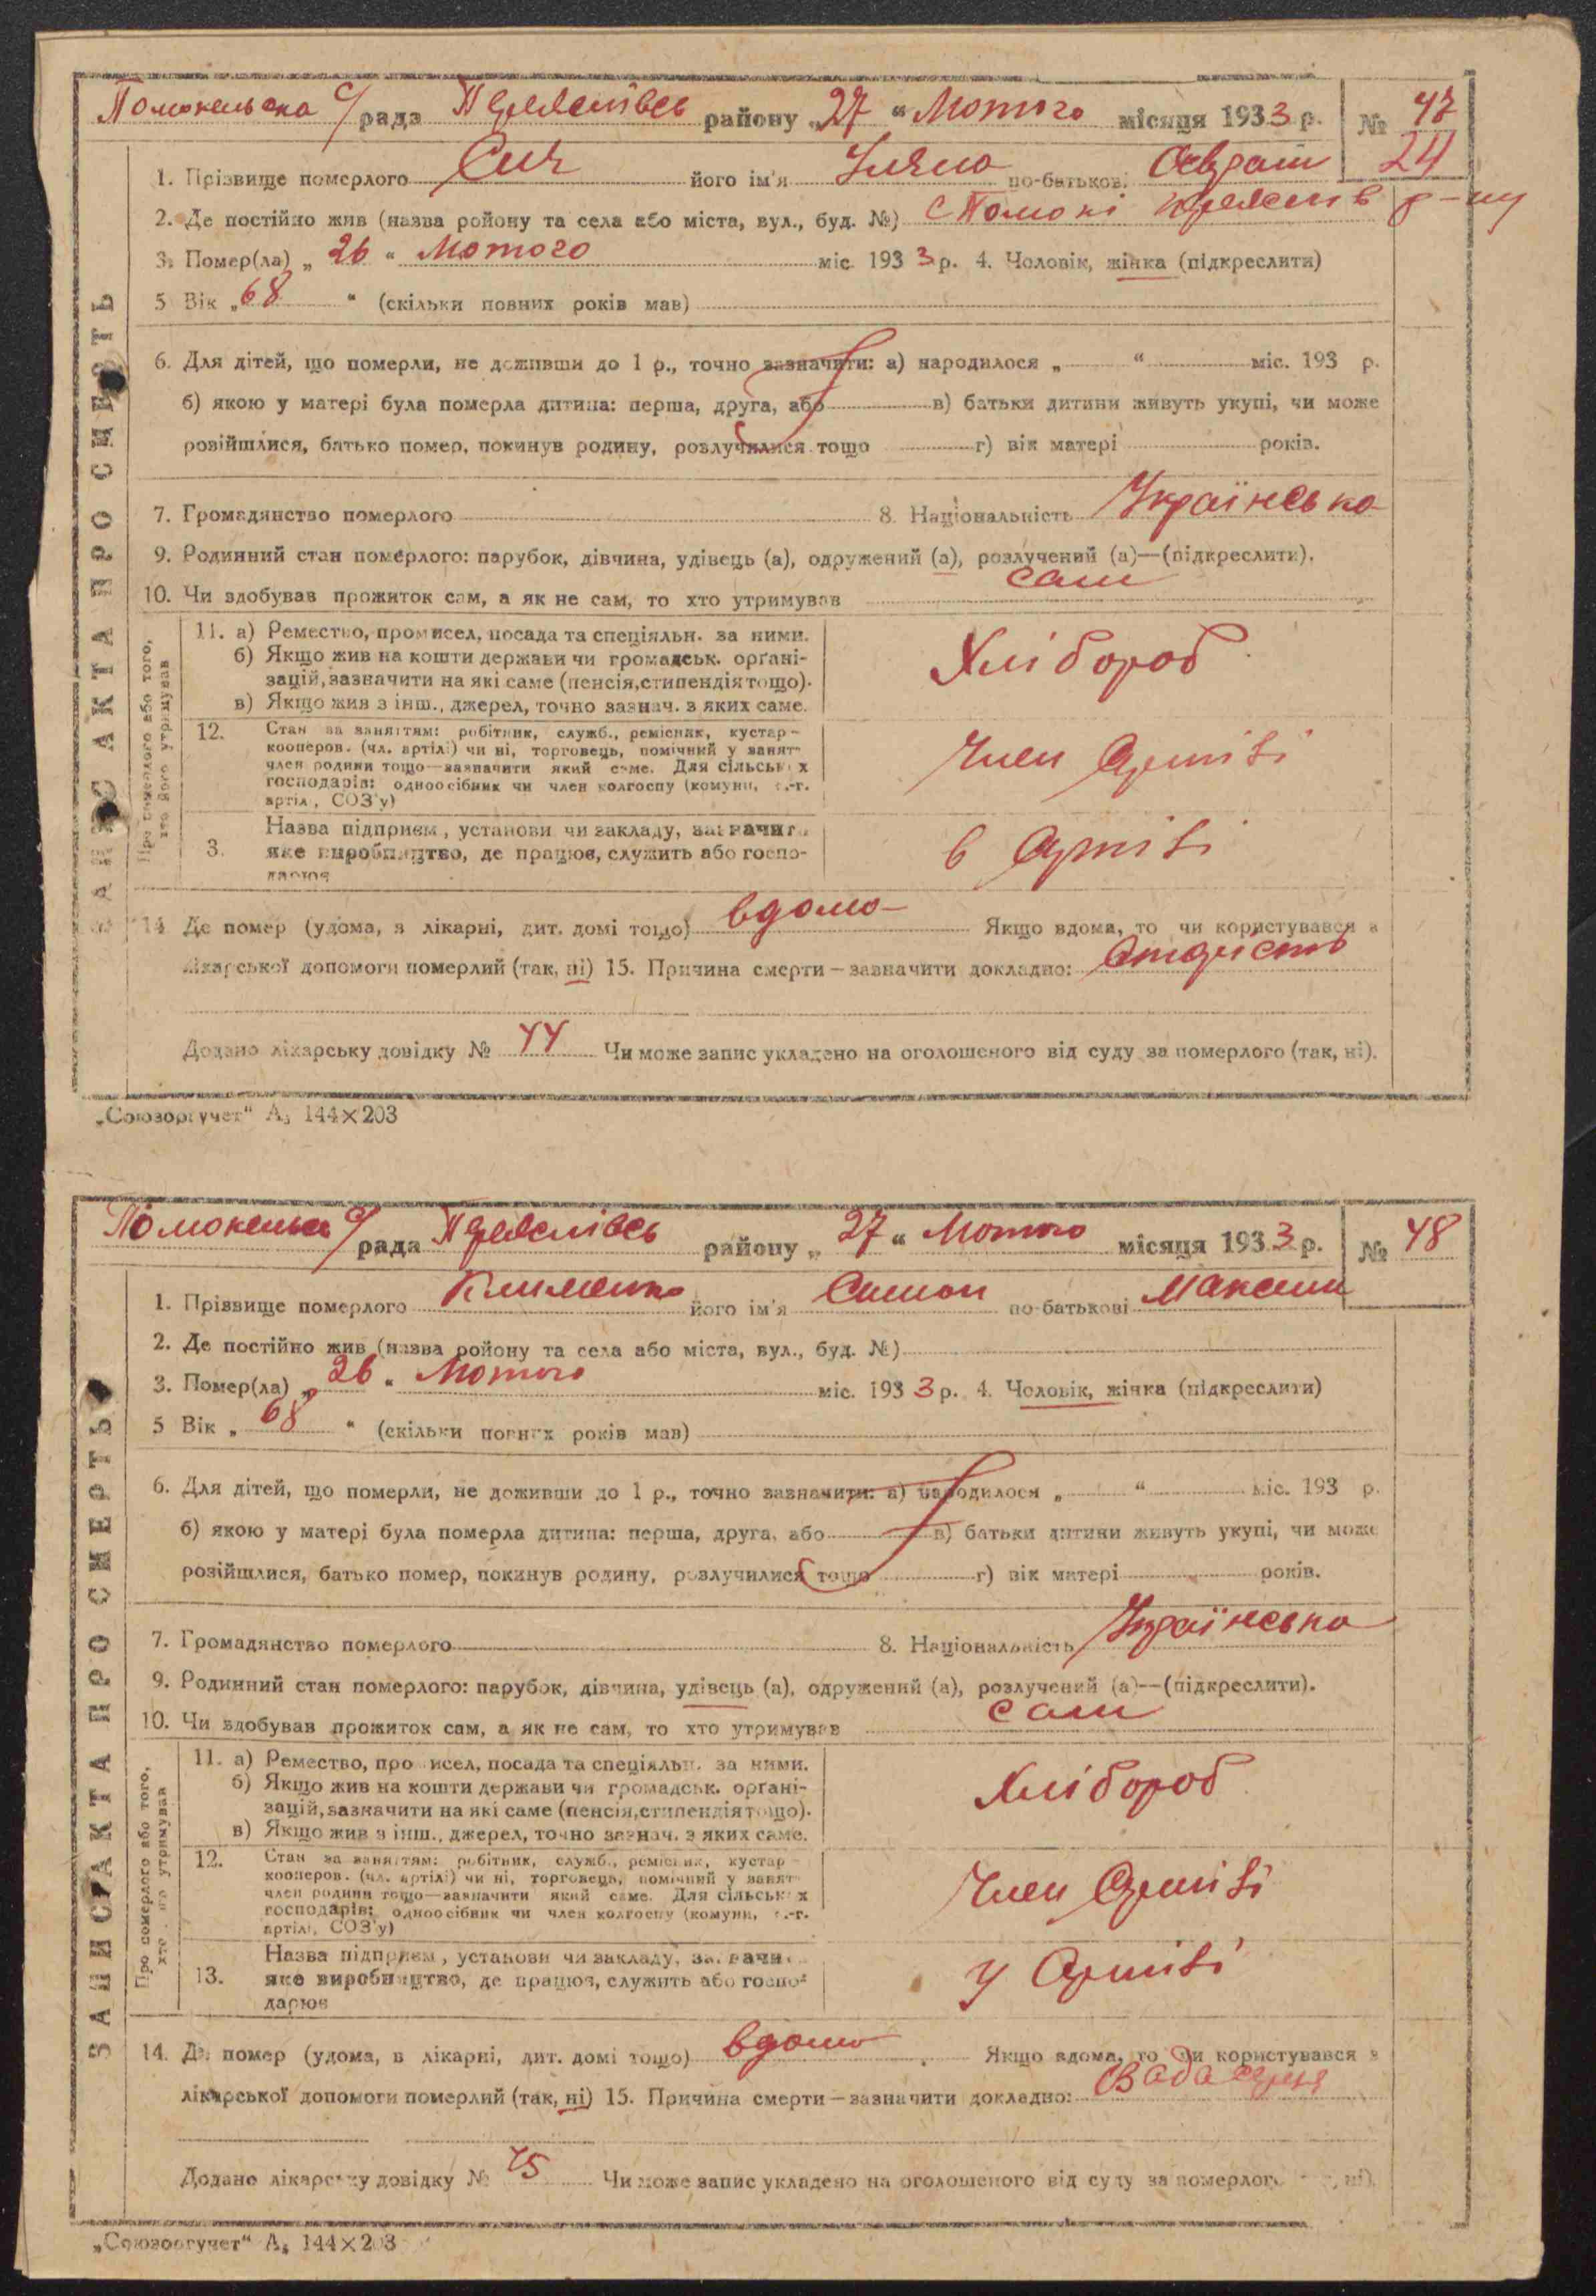 Помокельска с/рада Переяслівсь району „27“ Лютого місяця 1933 р. № 47
24
1. Прізвище померлого Сич його ім'я Уляна по-батькові
2. Де постійно жив (назва ройону та села або міста, вул., буд. №) с Помокі Переяслів р-ну
3. Помер(ла) „26“ Лютого міс. 1933 р. 4. Чоловік, жінка (підкреслити)
5 Вік „68“ (скільки повних років мав)
6. Для дітей, що померли, не доживши до 1 р., точно зазначити: а) народилося „ “ міс. 193 р.
б) якою у матері була померла дитина: перша, друга, або в) батьки дитини живуть укупі, чи може
розійшлися, батько помер, покинув родину, розлучилися тощо г) вік матері років.
7. Громадянство померлого 8. Національність Українська
9. Родинний стан померлого: парубок, дівчина, удівець (а), одружений (а), розлучений (а)—(підкреслити).
10. Чи здобував прожиток сам, а як не сам, то хто утримував сам
ЗАПИС АКТА ПРО СМЕРТЬ
Про померлого або того,
хто його утримував
11. а) Ремество, промисел, посада та спеціяльн. за ними.
б) Якщо жив на кошти держави чи громадськ. орґані-
зацій, зазначити на які саме (пенсія, стипендія тощо).
в) Якщо жив з інш., джерел, точно зазнач. з яких саме.
Хлібороб
12. Стан за заняттям: робітник, служб., ремісник, кустар-
кооперов. (чл. артілі) чи ні, торговець, помічний у занят.
член родини тощо—зазначити який саме. Для сільських
господарів: одноосібник чи член колгоспу (комуни, с.-г.
артілі, СОЗ'у)
Член Артілі
3. Назва підприєм, установи чи закладу, зазначити
яке виробництво, де працює, служить або госпо-
дарює
в Артілі
14 Де помер (удома, в лікарні, дит. домі тощо) вдома Якщо вдома, то чи користувався з
лікарської допомоги померлий (так, ні) 15. Причина смерти—зазначити докладно:
Додано лікарську довідку № 44 Чи може запис укладено на оголошеного від суду за померлого (так, ні).
„Союзоргучет“ А₅ 144×203
с/рада Переяслівсь району „27“ Лютого місяця 1933 р. № 48
1. Прізвище померлого Клименко його ім'я Симон по батькові Максим
2. Де постійно жив (назва ройону та села або міста, вул., буд. №)
3. Помер(ла) „26“ Лютого міс. 1933 р. 4. Чоловік, жінка (підкреслити)
5 Вік „68“ (скільки повних років мав)
6. Для дітей, що померли, не доживши до 1 р., точно зазначити: а) народилося „ “ міс. 193 р.
б) якою у матері була померла дитина: перша, друга, або в) батьки дитини живуть укупі, чи може
розійшлися, батько помер, покинув родину, розлучилися тощо г) вік матері років.
7. Громадянство померлого 8. Національність Українська
9. Родинний стан померлого: парубок, дівчина, удівець (а), одружений (а), розлучений (а)—(підкреслити).
10. Чи здобував прожиток сам, а як не сам, то хто утримував сам
ЗАПИС АКТА ПРО СМЕРТЬ
Про померлого або того,
хто його утримував
11. а) Ремество, промисел, посада та спеціяльн. за ними.
б) Якщо жив на кошти держави чи громадськ. орґані-
зацій, зазначити на які саме (пенсія, стипендія тощо).
в) Якщо жив з інш., джерел, точно зазнач. з яких саме.
Хлібороб
12. Стан за заняттям: робітник, служб., ремісник, кустар-
кооперов. (чл. артілі) чи ні, торговець, помічний у занят.
член родини тощо—зазначити який саме. Для сільських
господарів: одноосібник чи член колгоспу (комуни, с.-г.
артілі, СОЗ'у)
Член Артілі
13. Назва підприєм, установи чи закладу, зазначи
яке виробництво, де працює, служить або госпо-
дарює
у Артілі
14. Де помер (удома, в лікарні, дит. домі тощо) вдома Якщо вдома, то чи користувався з
лікарської допомоги померлий (так, ні) 15. Причина смерти—зазначити докладно: Вада серця
Додано лікарську довідку № 45 Чи може запис укладено на оголошеного від суду за померлого ні).
„Союзоргучет“ А₅ 144×203